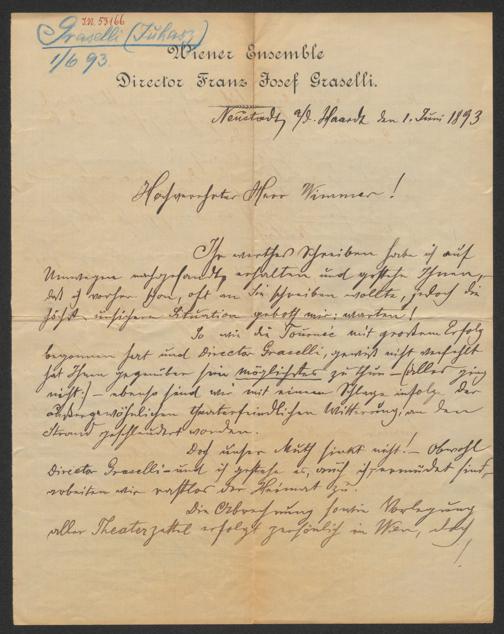 I.N. 53166
Graselli (Juhasz)
1/6 93.
Wiener Ensemble
Director Franz Josef Graselli.
Neustadt a/d. Haardt den 1. Juni 1893
Hochverehrter Herr Wimmer!
Ihr werthes Schreiben habe ich auf
Umwegen nachgesandt, erhalten und gestehe Ihnen,
daß ich vorher schon, oft an Sie schreiben wollte, jedoch die
höchst unsichere Situation gebot mir: warten!
So wie die Tournée mit großem Erfolg
begonnen hat und Director Graselli, gewiß nicht verfehlt
hat Ihnen gegenüber sein möglichstes zu thun – (alles ging
nicht!) – ebenso sind wir mit einem Schlage infolge der
außergewöhnlichen theaterfeindlichen Witterung, an den
Strand geschleudert worden.
Doch unser Muth sinkt nicht! – Obwohl
Director Graselli – und ich gestehe es, auch ich, ermüdet sind,
arbeiten wir rastlos der Heimat zu.
Die Abrechnung sowie Vorlegung
aller Theaterzettel erfolgt persönlich in Wien, doch